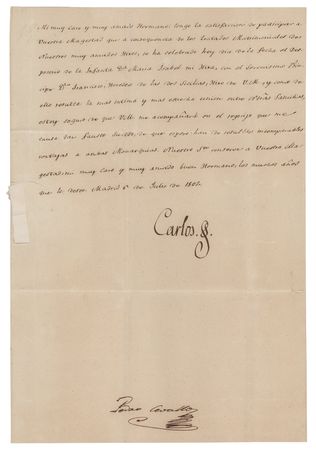 Mi muy Caro y muy amado Hermano: tengo la satisfaccion de participar a
Vuestra Magestad que a consequencia de los Tratados Matrimoniales de
Nuestros muy amados Hijos, se ha celebrado hoy dia de la fecha el Des-
posorio de la Infanta Dª Maria Isabel mi Hija, con el Serenisimo Prin-
cipe Dn Francisco, Heredero de las dos Sicilias, Hijo de V.M. y como de
ello resulta la mas intima y mas estrecha union entre Nuestras Familias,
estoy seguro de que V.M. me acompañará en el regocijo que me
causa tan fausto suceso, de que espero han de resultar incomparables
ventajas a ambas Monarquias. Nuestro Sr conserve a Vuestra Ma-
gestad mi muy Caro y muy amado buen Hermano, los muchos años
que le deseo. Madrid 6 de Julio de 1802.
Carlos
Pedro Cevallos